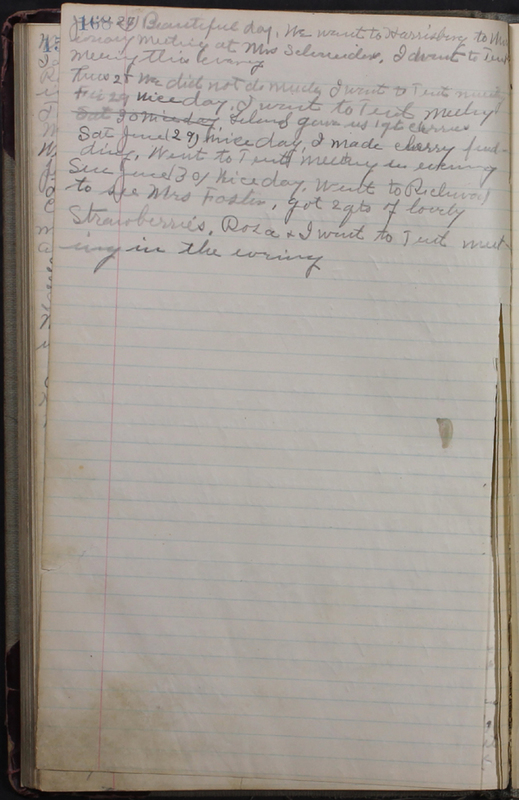 168
24) Beautiful day, We went to Harrisburg to
meeting at Mrs Schneider, I dwent to Tent
meeting this evening
Thurs 28 We did not do much, I went to Tent
Fri 29 nice day, I went to Tent meeting
Sat 30 nice day Leland gave us 1 qt cherries
Sat June 29) nice day, I made cherry pud-
ding, Went to Tent meeting in evening
Sun June 30) nice day, Went to
to see Mrs Foster, got 2 qts of lovely
Strawberries, Rosa & I went to Tent meet
ing in the evening